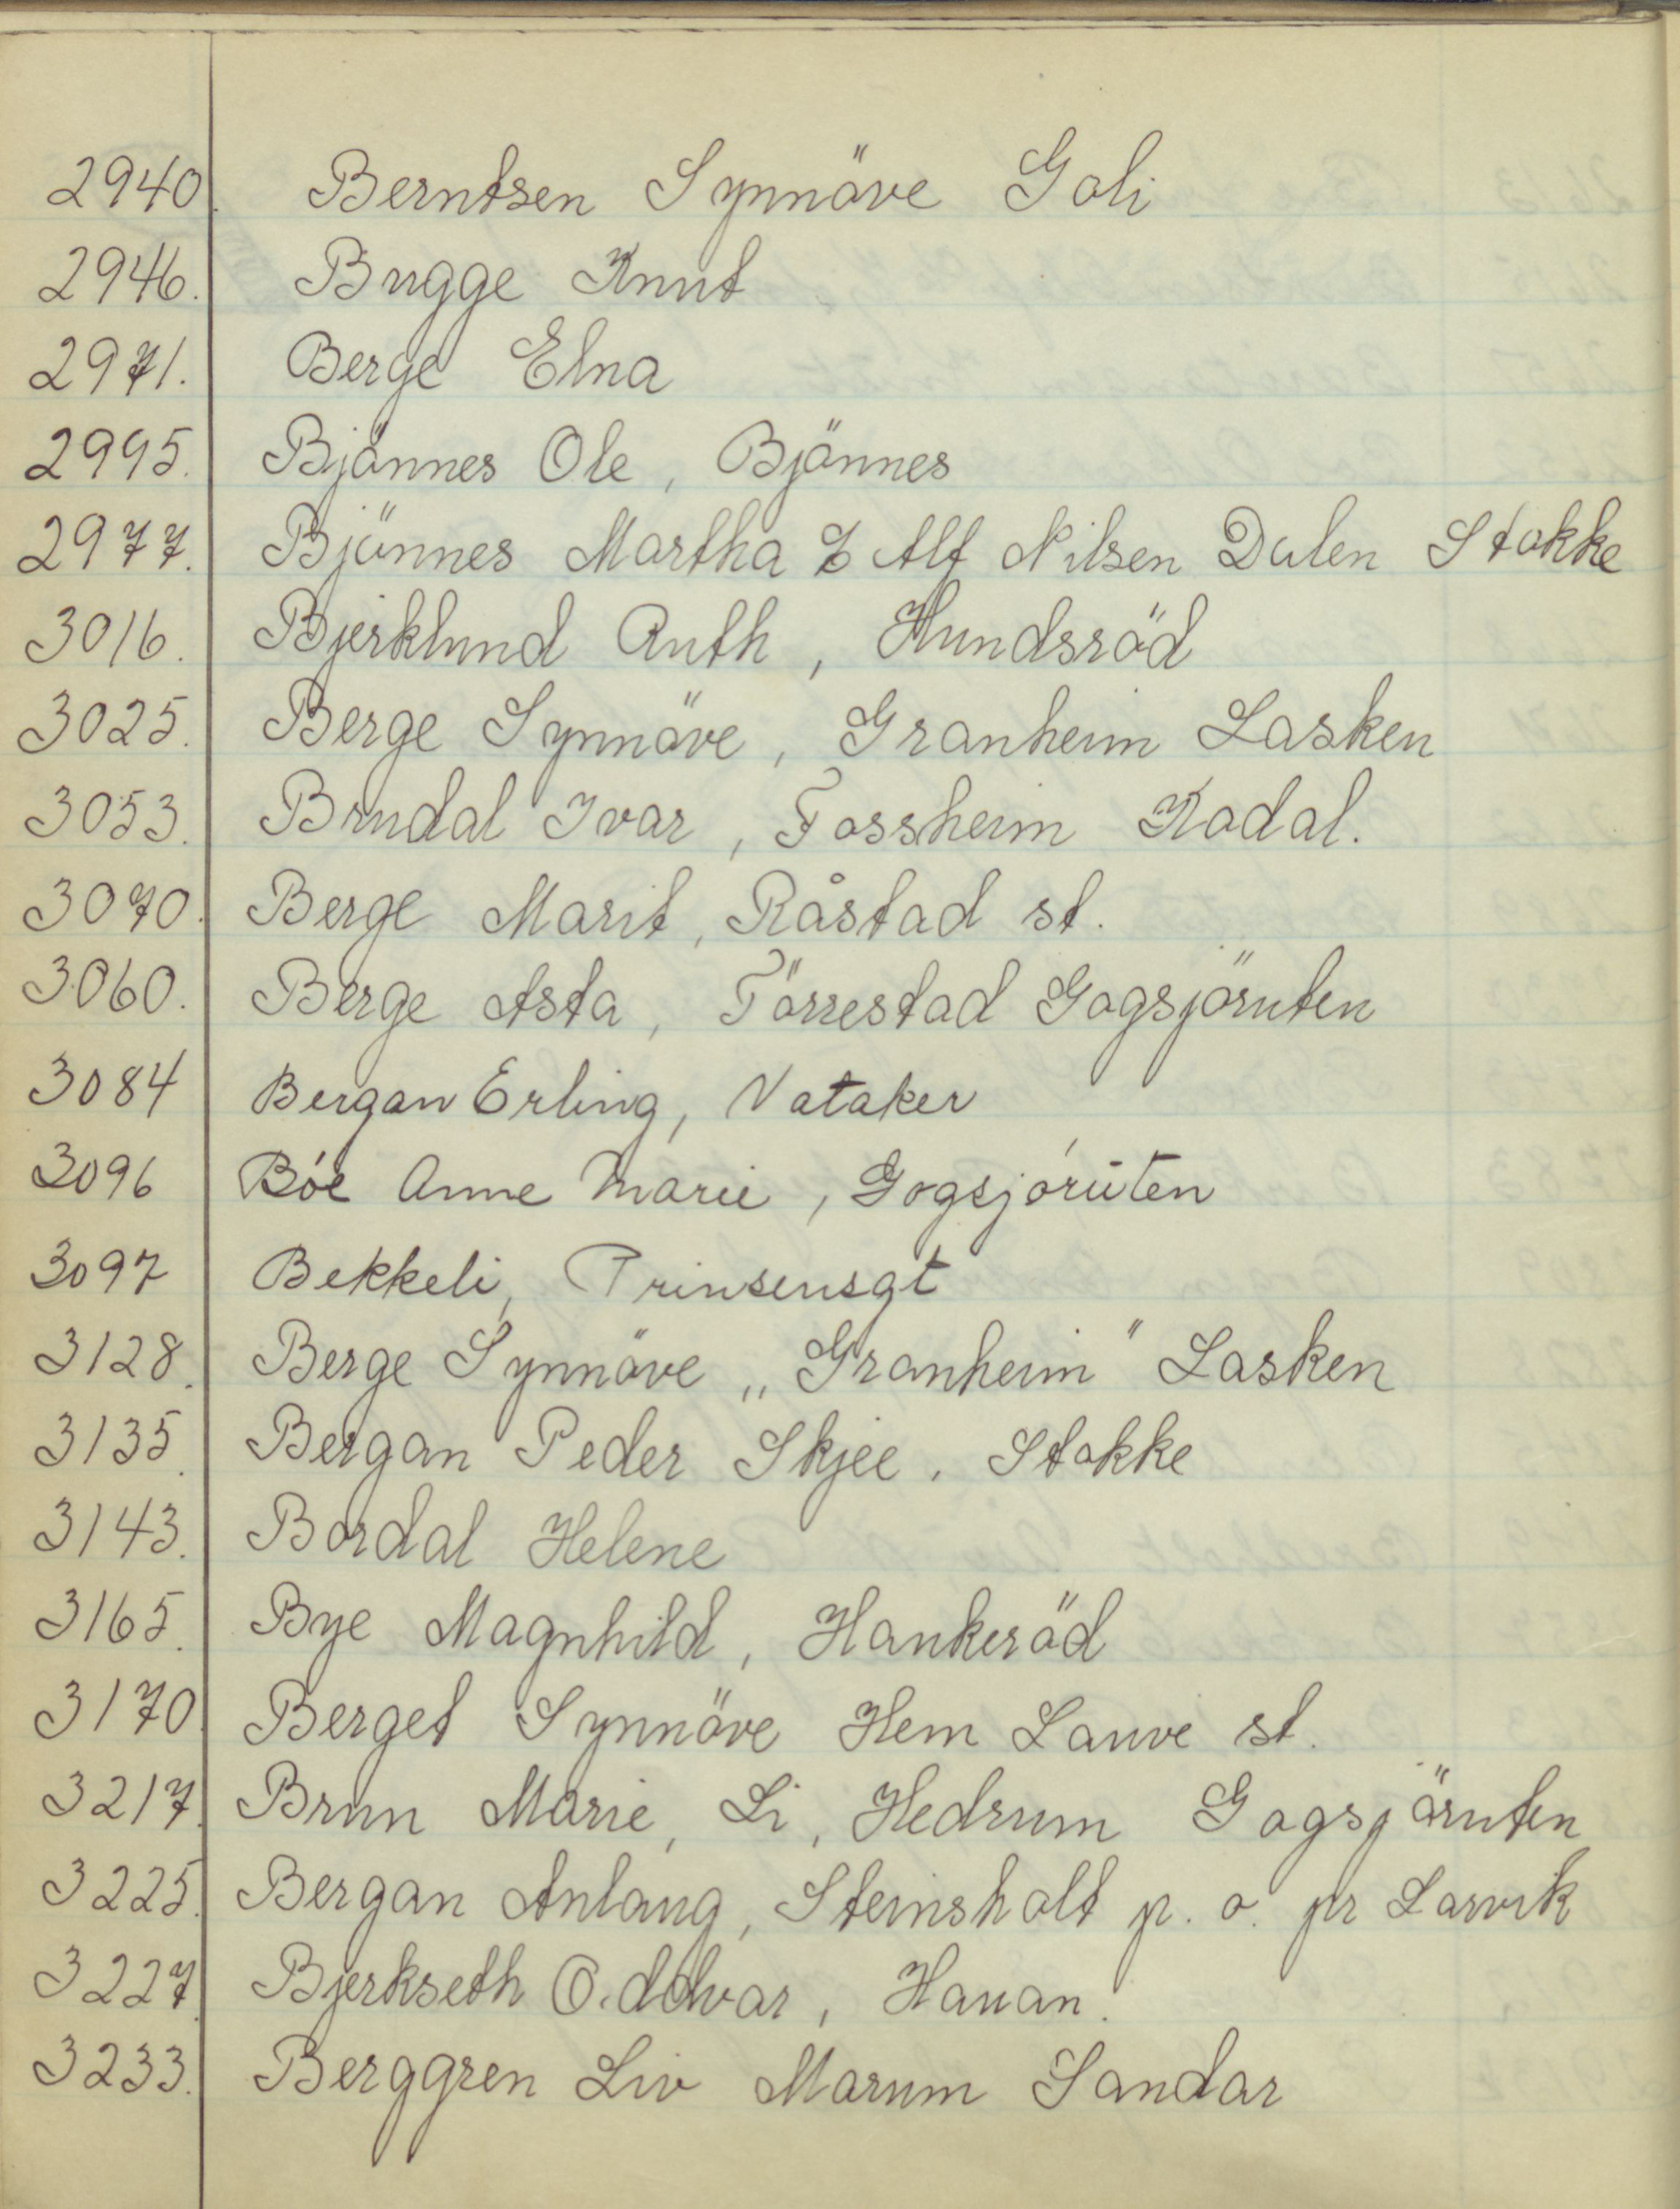 2940. Berntsen Synnöve Goli
2946. Bugge Knut
2971. Berge Elna
2995. Bjönnes Ole, Bjönnes
2977. Bjönnes Martha % Alf Nilsen Dalen Stokke
3016. Bjerklund Ruth, Hundsröd
3025. Berge Synnöve, Granheim Lasken
3053. Brudal Ivar, Fossheim Kodal.
3070. Berge Marit, Råstad st.
3060. Berge Asta, Törrestad Gogsjöruten
3084 Bergan Erling, Vataker
3096 Bóe Anne Marie, Gogsjórúten
3097 Bekkeli, Prinsensgt
3128. Berge Synnöve „Granheim" Lasken
3135. Bergan Peder Skjee. Stokke
3143. Bordal Helene
3165. Bye Magnhild, Hankeröd
3170. Berget Synnöve Hem Lauve st.
3217. Brun Marie, Li, Hedrum Gogsjöruten
3225. Bergan Anlaug, Steinsholt p. o. pr Larvik
3227. Bjerkseth Oddvar, Hauan.
3233. Berggren Liv Marum Sandar